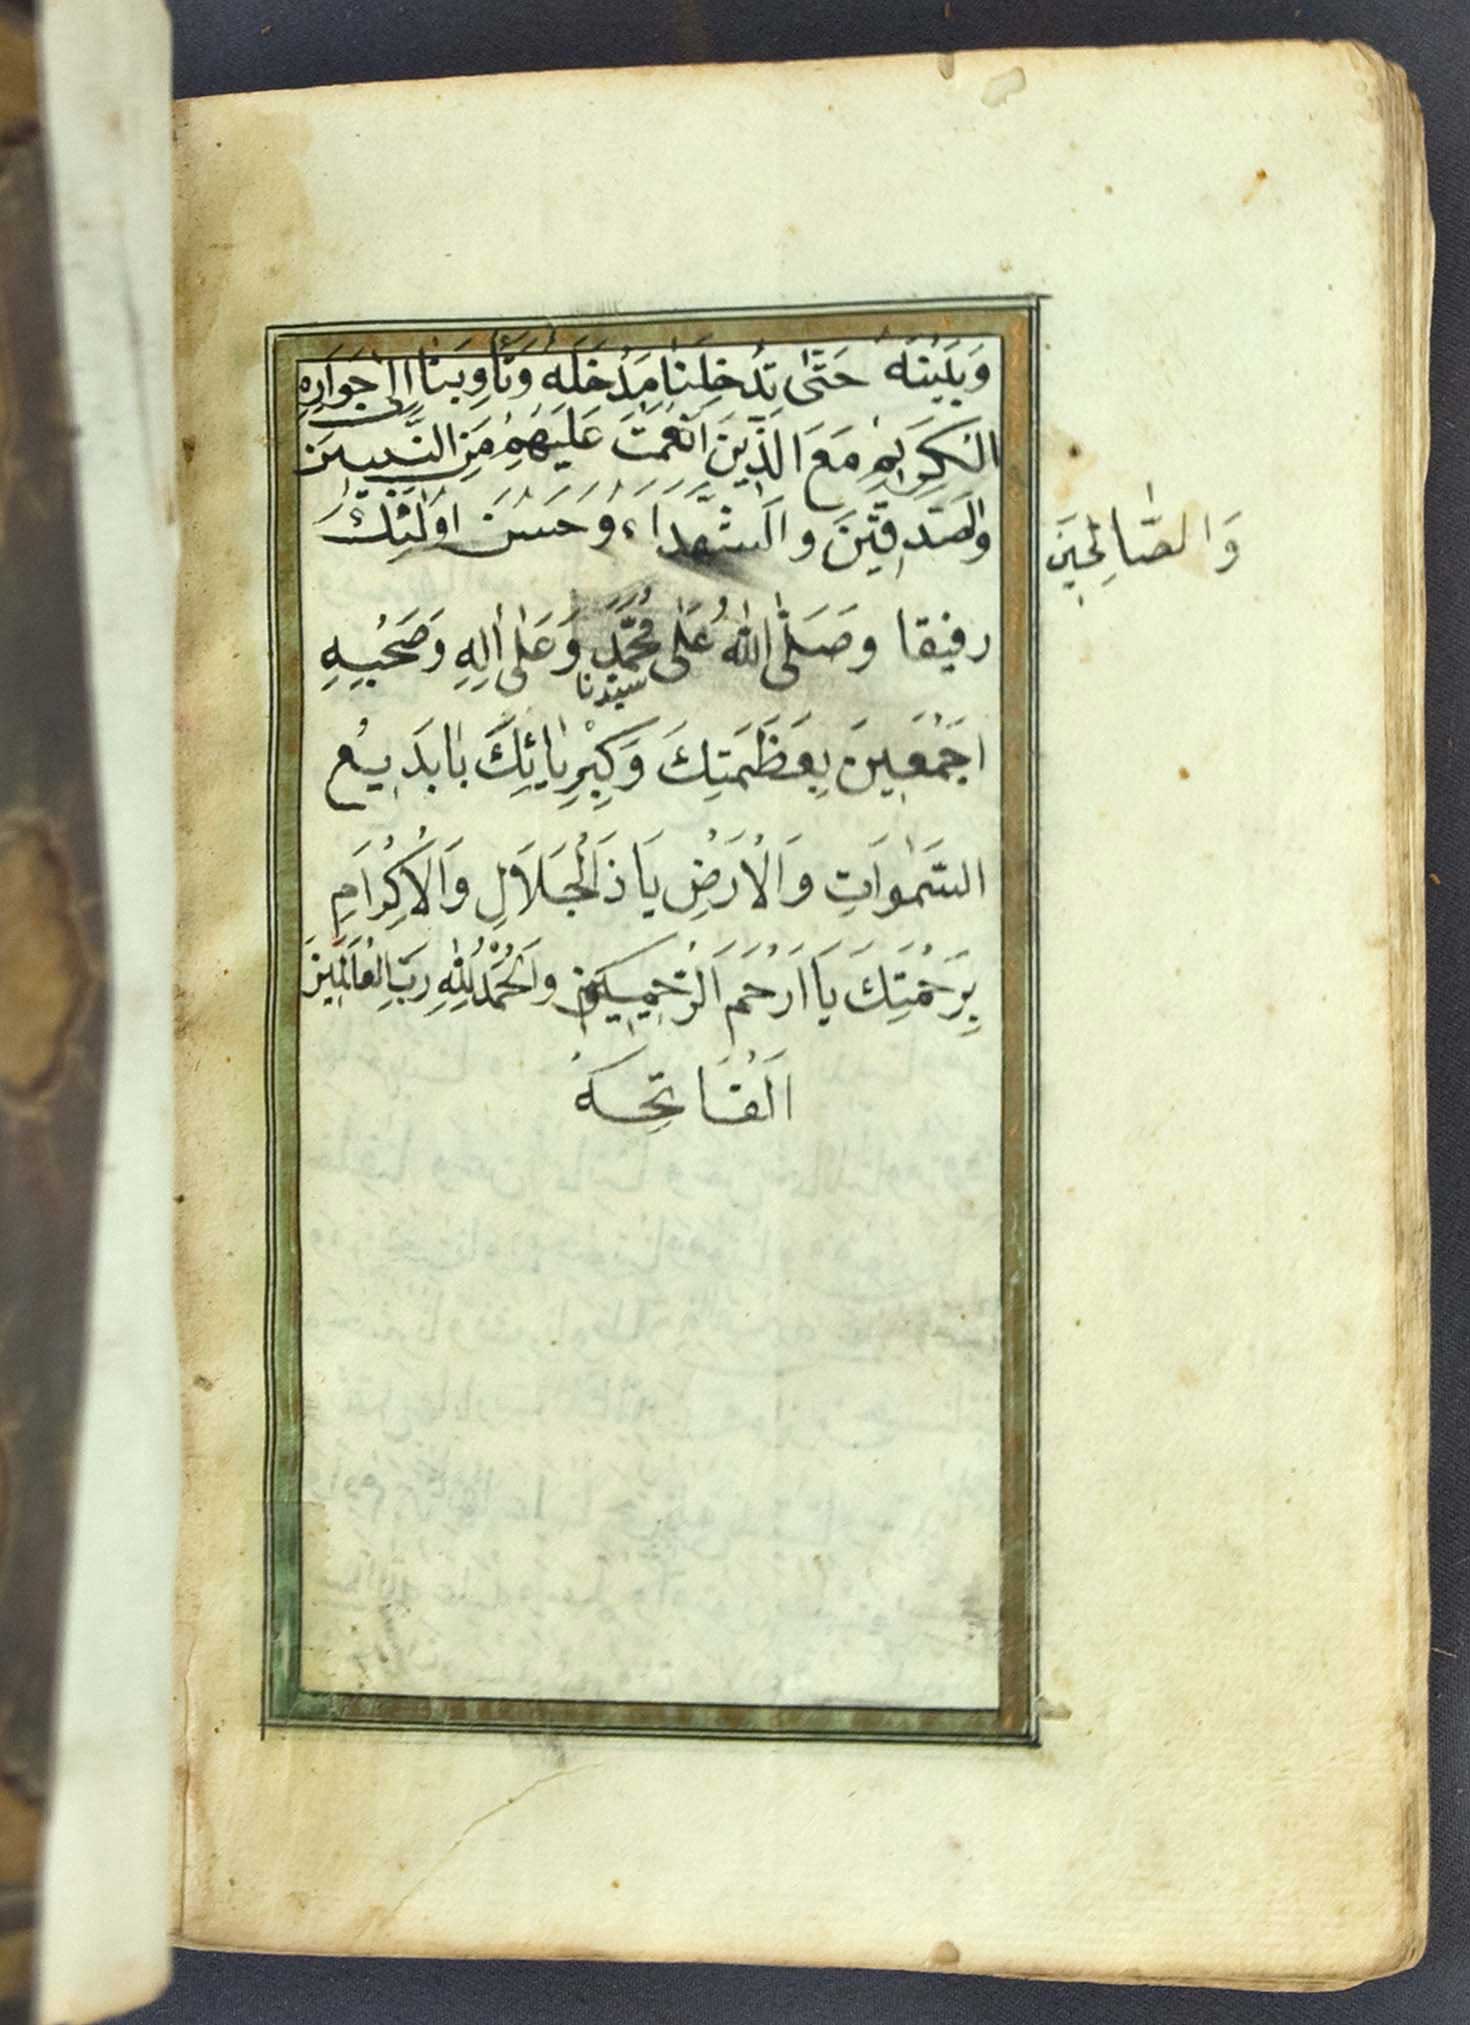 وَبَيْنَهُ حَتّٰى تُدْخِلَنَا مَدْخَلَهُ وَتَأْوِيَنَا اِلٰى جَوَارِهِ
الْكَرِيْمِ مَعَ الَّذِيْنَ اَنْعَمْتَ عَلَيْهِمْ مِنَ النَّبِيّٖنَ
وَالصِّدِّقِيْنَ وَالشُّهَدَاءِ وَحَسُنَ اُولٰئِكَ
وَالصَّالِحِيْنَ
رفيقا وَصَلَّى اللّٰهُ عَلٰى مُحَمَّدٍ وَعَلٰى اٰلِهِ وَصَحْبِهِ
سيدنا
اَجْمَعِيْنَ بِعَظَمَتِكَ وَكِبْرِيَائِكَ يَا بَدِيْعَ
السَّمٰوَاتِ وَالْاَرْضِ يَا ذَالْجَلَالِ وَالْاِكْرَامِ
بِرَحْمَتِكَ يَا اَرْحَمَ الرّٰحِمِيْنَ وَالْحَمْدُ لِلّٰهِ رَبِّ الْعَالَمِيْنَ
اَلْفَاتِحَهْ